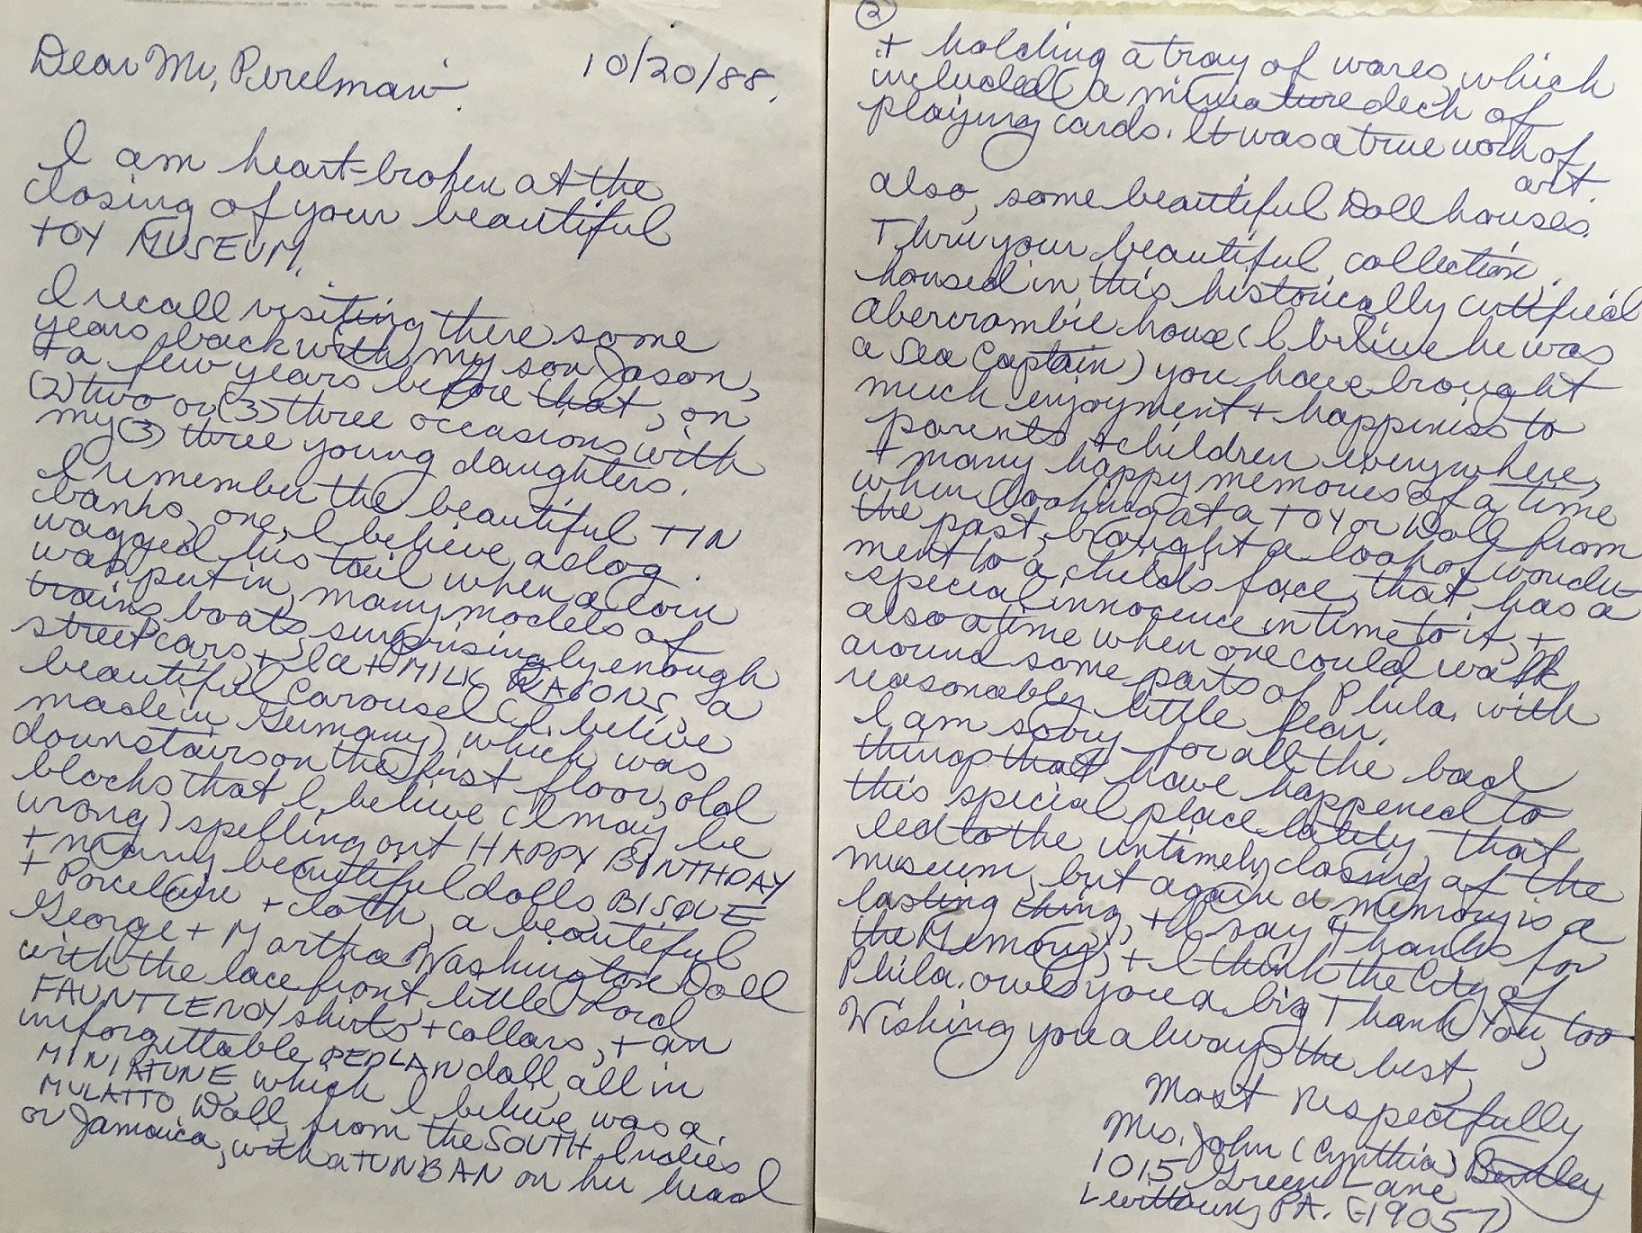 Dear Mr. Perelman.
10/20/88.
I am heart-broken at the
closing of your beautiful
TOY MUSEUM.
I recall visiting there some
years back with my son Jason,
+ a few years before that, on
(2) two or (3) three occasions with
my (3) three young daughters.
I remember the beautiful TIN
banks, one, I believe a dog
wagged his tail when a coin
was put in, many models of
trains boats surprisingly enough
street cars + MILK WAGONS, a
beautiful Carousel (I believe
made in Germany) which was
downstairs on the first floor, old
blocks that I believe (I may be
wrong) spelling out HAPPY BIRTHDAY
+ many beautiful dolls BISQUE
+ Porcelain + cloth, a beautiful
George + Martha Washington Doll
with the lace front, little Lord
FAUNTLEROY shirts + collars, + an
unforgettable PEDLAR doll, all in
MINIATURE which I believe was a
MULATTO Doll, from the SOUTH Indies
or Jamaica, with a TURBAN on her head
2
+ holding a tray of wares, which
included a miniature deck of
playing cards. It was a true work of
art.
also, some beautiful Doll houses.
Thru your beautiful collection,
housed in this historically certified
Abercrombie house (I believe he was
a Sea Captain) you have brought
much enjoyment + happiness to
parents + children everywhere,
+ many happy memories of a time
when looking at a TOY or Doll from
the past, brought a look of wonder-
ment to a childs face, that has a
special innocence in time to it, +
also a time when one could walk
around some parts of Phila. with
reasonably little fear.
I am sorry for all the bad
things that have happened to
this special place lately, that
led to the untimely closing of the
museum, but again a memory is a
lasting thing, + I say Thanks for
the Memory, + I think the City of
Phila. owes you a big Thank You, too
Wishing you always the best,
Most Respectfully
Mrs. John (Cynthia) Bentley
1015 Green Lane
Levittown, PA. (19057)